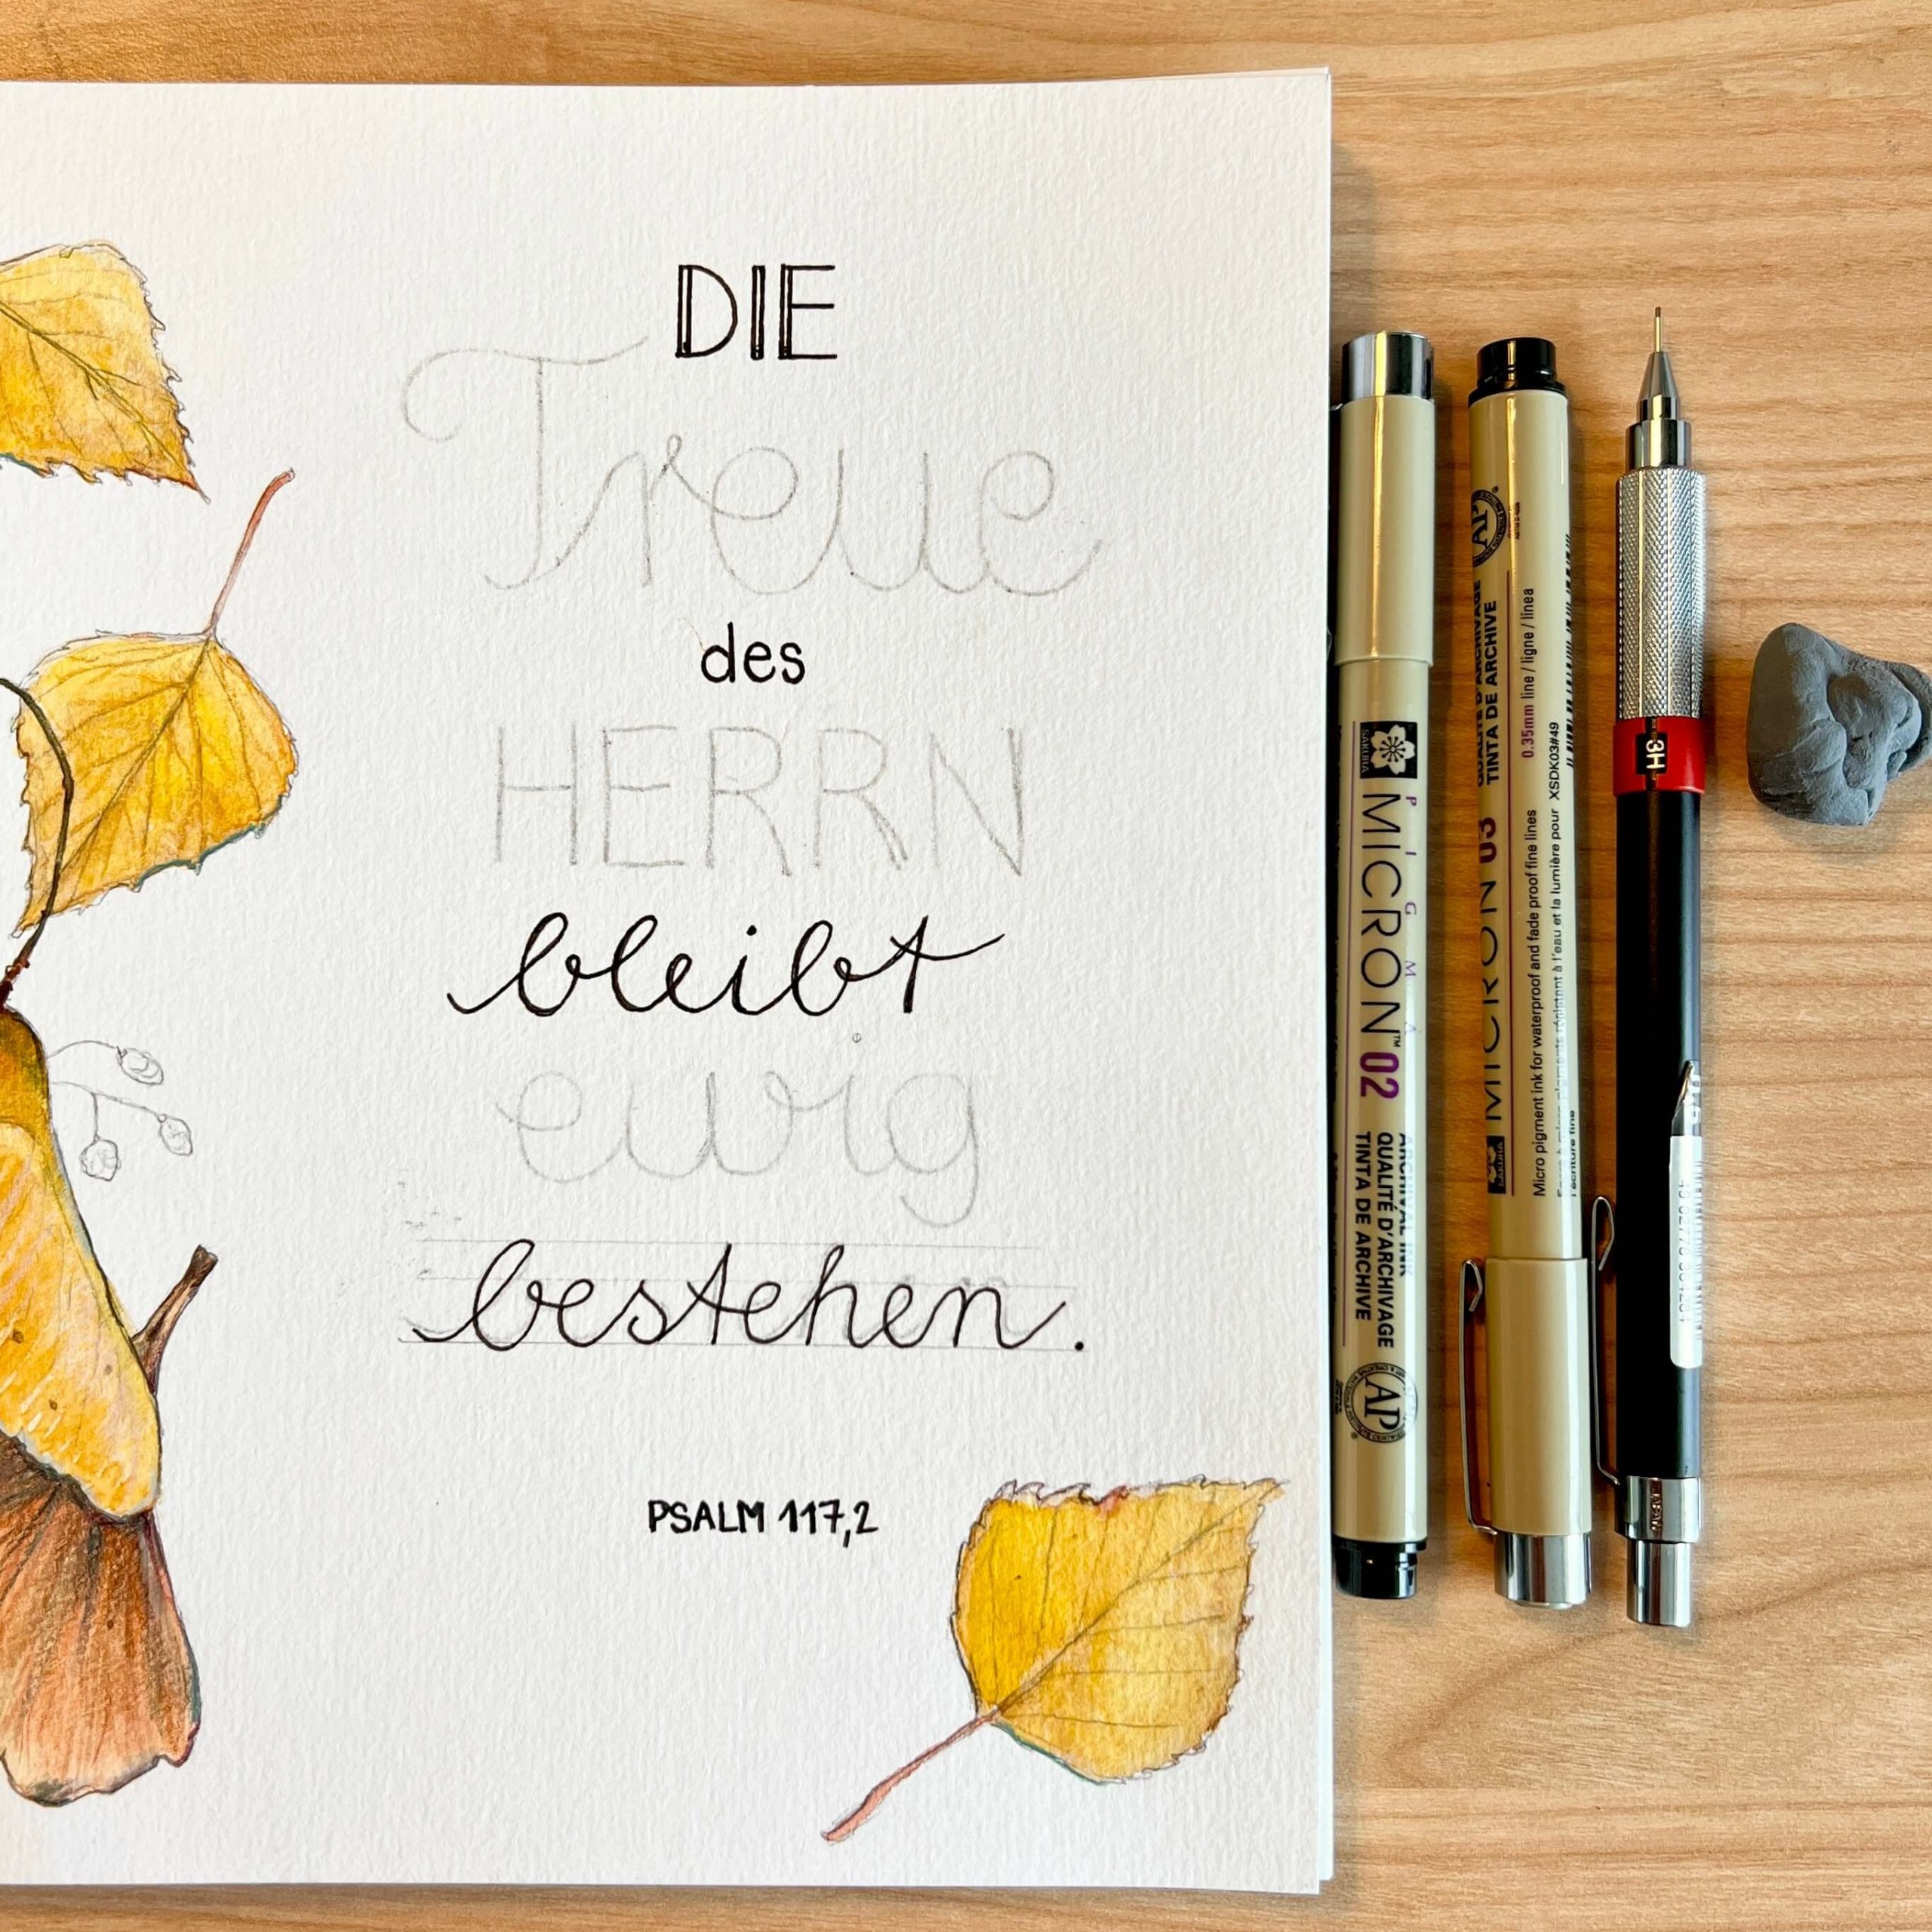 DIE
Treue
des
HERRN
bleibt
ewig
bestehen.
PSALM 117,2
SAKURA
PIGMA
MICRON™ 02
ARCHIVAL INK
QUALITÉ D'ARCHIVAGE
TINTA DE ARCHIVE
AP
AP
QUALITÉ D'ARCHIVAGE
TINTA DE ARCHIVE
0.35mm line / ligne / línea
MICRON 03
SAKURA
XSDK03#49
Micro pigment ink for waterproof and fade proof fine lines
l'écriture fine
3H
JAPAN